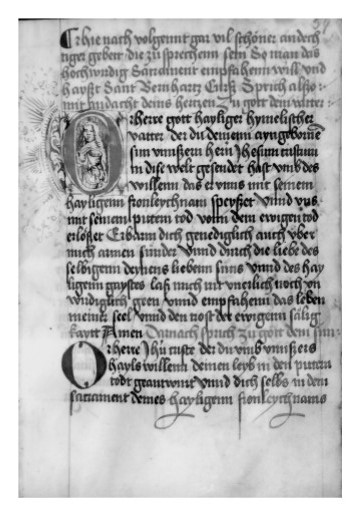 Hie nach volgennt gar vil schöner andech
tiger gebett die zu sprechenn sein So man das
hochwirdig Sacrament empfahenn will vnd
haysst Sant Bernhartz Curß Sprich also
mit andacht deins hertzen zu gott dem vatter
O herre gott hayliger hymelischer
vatter der du deinenn ayngeborne
sun vnnßern hern Jhesum cristum
in dise welt gesendet hast vmb des
willenn das er vnns mit seinem
hayligenn fronleychnam speyßet vnnd vns
mit seinem pittern tod vonn dem ewigen tod
erlößet Erbarm dich genediglich auch vber
mich armen sünder vnnd durch die liebe des
selbigenn deynens liebenn suns vnnd des hay
ligenn gaystes laß mich nit vnerlich noch vn
wirdiglich geen vnnd empfahenn das leben
meiner seel vnnd den trost der ewigenn sälig
kaytt Amen Darnach sprich zu gott dem sun
O herre Jhu criste der du vmb vnnßers
hayls willenn deinen leyb in den pittern
todt geantwurt vnnd dich selbs in dem
sacrament deines hayligenn fronleychnams